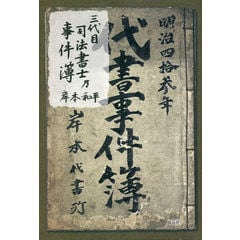 明治四拾参年
代書事件簿
岸本代書所
三代目
司法書士乃
事件簿
岸本和平